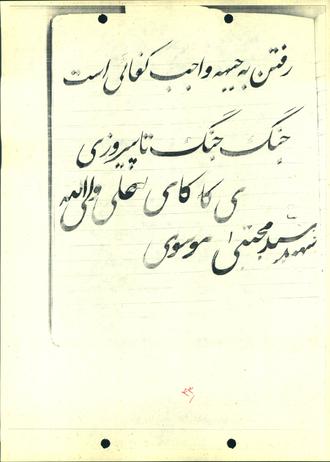 رفتن به جبهه واجب کفائی است
جنگ جنگ تا پیروزی
ی کا کای علی ولی الله
شهید سید مجتبی موسوی
۳۳